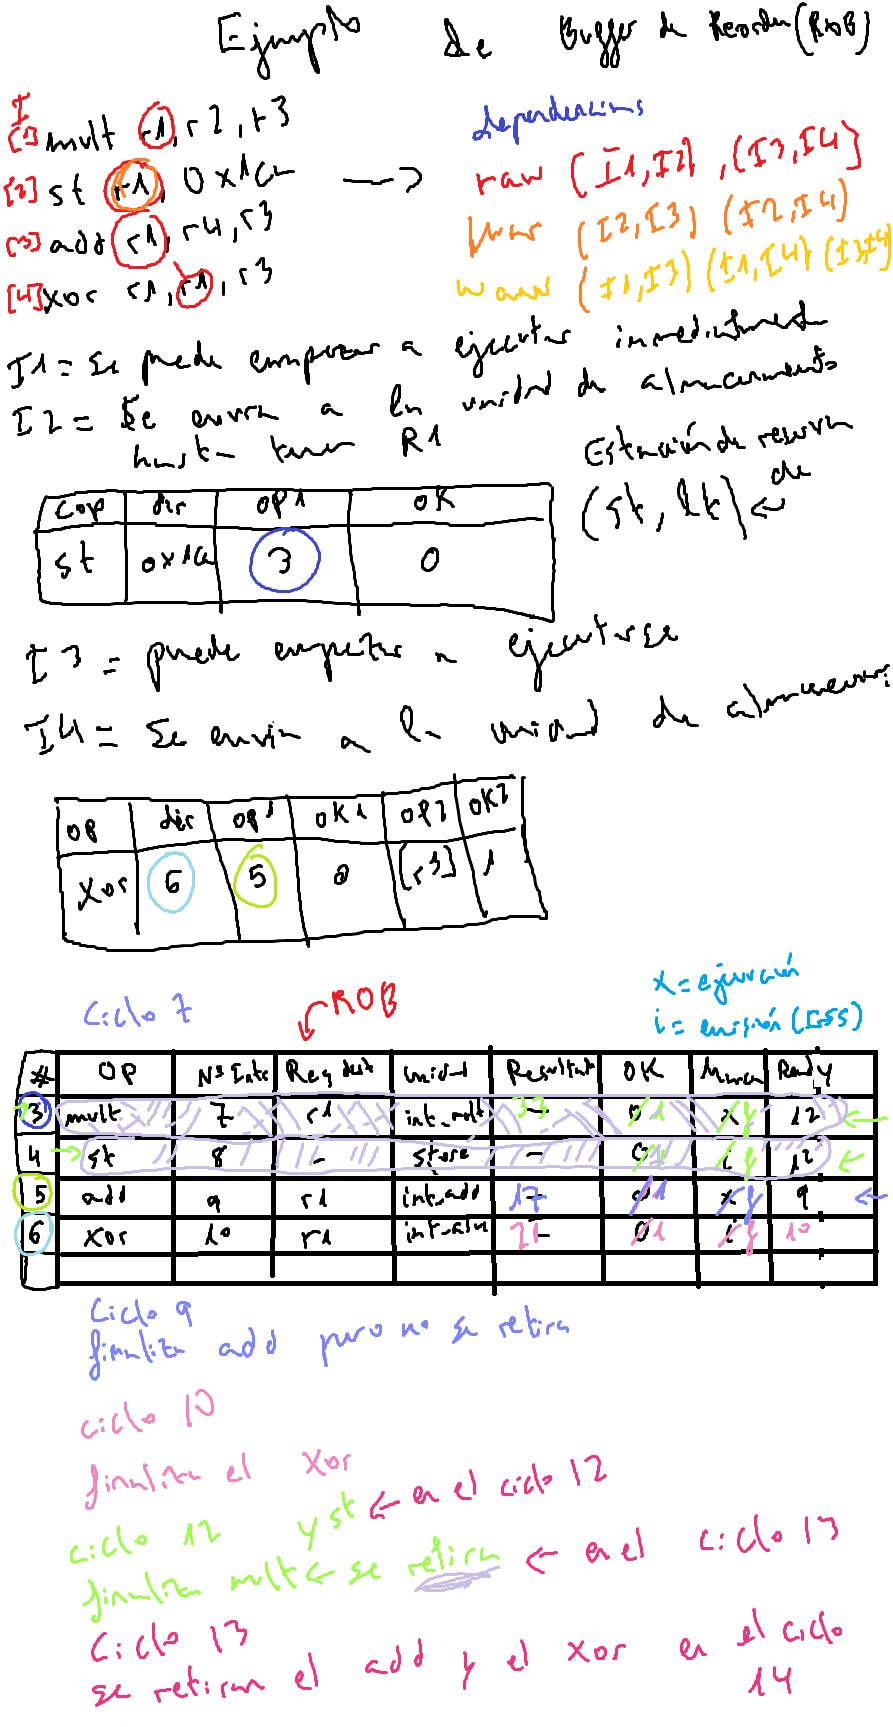 Ejemplo de Buffer de Reorden (ROB)
I
[1] mult r1, r2, r3
[2] st r1, 0x1ca
[3] add r1, r4, r3
[4] xor r1, r1, r3
dependencias
raw (I1, I2), (I3, I4)
war (I2, I3) (I2, I4)
waw (I1, I3) (I1, I4) (I3, I4)
I1 = Se puede empezar a ejecutar inmediatament
I2 = Se envia a la unidad de almacenamiento
hasta tener R1
Estación de reserva
de
(st, lt) <-
cop dir OP1 OK
st 0x1ca 3 0
I3 = puede empezar a ejecutarse
I4 = Se envia a la unidad de almacenami
OP dir OP1 OK1 OP2 OK2
Xor 6 5 0 [r3] 1
Ciclo 7
ROB
x = ejecución
i = emisión (ISS)
# OP Nº Inst Reg dest Unidad Resultat OK Marca Ready
3 mult 7 r1 int_mult - 33 0 1 x f 12
4 st 8 - store - 0 1 i f 12
5 add 9 r1 int_add - 17 0 1 x f 9
6 xor 10 r1 int_alu - 21 0 1 i f 10
Ciclo 9
finaliza add pero no se retira
ciclo 10
finaliza el xor
ciclo 12 y st <- en el ciclo 12
finaliza mult <- se retira <- en el ciclo 13
Ciclo 13
se retiran el add y el xor en el ciclo
14